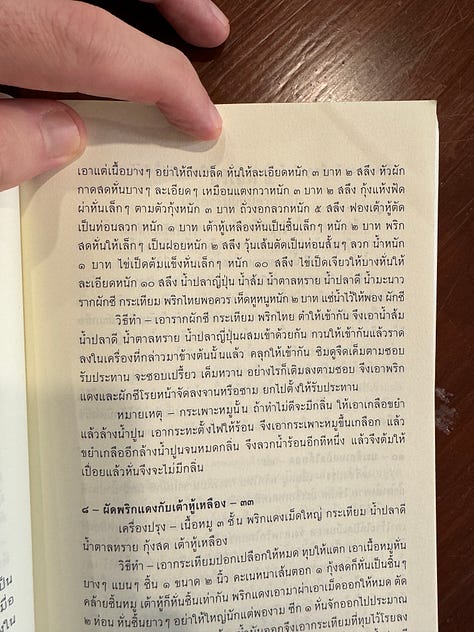 เอาแต่เนื้อบางๆ อย่าให้ถึงเมล็ด หั่นให้ละเอียดหนัก ๓ บาท ๒ สลึง หัวผัก
กาดสดหั่นบางๆ ละเอียดๆ เหมือนแตงกวาหนัก ๓ บาท ๒ สลึง กุ้งแห้งฟัด
ผ่าหั่นเล็กๆ ตามตัวกุ้งหนัก ๓ บาท ถั่วงอกลวกหนัก ๕ สลึง ฟองเต้าหู้ตัด
เป็นท่อนลวก หนัก ๑ บาท เต้าหู้เหลืองหั่นเป็นชิ้นเล็กๆ หนัก ๒ บาท พริก
สดหั่นให้เล็กๆ เป็นฝอยหนัก ๒ สลึง วุ้นเส้นตัดเป็นท่อนสั้นๆ ลวก น้ำหนัก
๑ บาท ไข่เป็ดต้มแข็งหั่นเล็กๆ หนัก ๑๐ สลึง ไข่เป็ดเจียวให้บางหั่นให้
ละเอียดหนัก ๑๐ สลึง น้ำปลาญี่ปุ่น น้ำส้ม น้ำตาลทราย น้ำปลาดี น้ำมะนาว
รากผักชี กระเทียม พริกไทยพอควร เห็ดหูหนูหนัก ๒ บาท แช่น้ำไว้ให้พอง ผักชี
วิธีทำ – เอารากผักชี กระเทียม พริกไทย ตำให้เข้ากัน จึงเอาน้ำส้ม
น้ำปลาดี น้ำตาลทราย น้ำปลาญี่ปุ่นผสมเข้าด้วยกัน กวนให้เข้ากันแล้วราด
ลงในเครื่องที่กล่าวมาข้างต้นนั้นแล้ว คลุกให้เข้ากัน ชิมดูจืดเค็มตามชอบ
รับประทาน จะชอบเปรี้ยว เค็มหวาน อย่างไรก็เติมลงตามชอบ จึงเอาพริก
แดงและผักชีโรยหน้าจัดลงจานหรือชาม ยกไปตั้งให้รับประทาน
หมายเหตุ – กระเพาะหมูนั้น ถ้าทำไม่ดีจะมีกลิ่น ให้เอาเกลือขยำ
แล้วล้างน้ำปูน เอากระทะตั้งไฟให้ร้อน จึงเอากระเพาะหมูขึ้นเลือก แล้ว
ขยำเกลืออีกล้างน้ำปูนจนหมดกลิ่น จึงลวกน้ำร้อนอีกทีหนึ่ง แล้วจึงต้มให้
เปื่อยแล้วหั่นจึงจะไม่มีกลิ่น
๘ – ผัดพริกแดงกับเต้าหู้เหลือง – ๓๓
เครื่องปรุง – เนื้อหมู ๓ ชั้น พริกแดงเม็ดใหญ่ กระเทียม น้ำปลาดี
น้ำตาลทราย กุ้งสด เต้าหู้เหลือง
วิธีทำ – เอากระเทียมปอกเปลือกให้หมด ทุบให้แตก เอาเนื้อหมูหั่น
บางๆ แบนๆ ชิ้น ๑ ขนาด ๒ นิ้ว คะเนหนาเส้นตอก ๑ กุ้งสดก็หั่นเป็นชิ้นๆ
คล้ายชิ้นหมู เต้าหู้ก็หั่นชิ้นเท่ากัน พริกแดงเอามาผ่าเอาเม็ดออกให้หมด ตัด
๒ ท่อน หั่นชิ้นยาวๆ อย่าให้ใหญ่นักแต่พองาม ซีก ๑ หั่นจักออกไปประมาณ